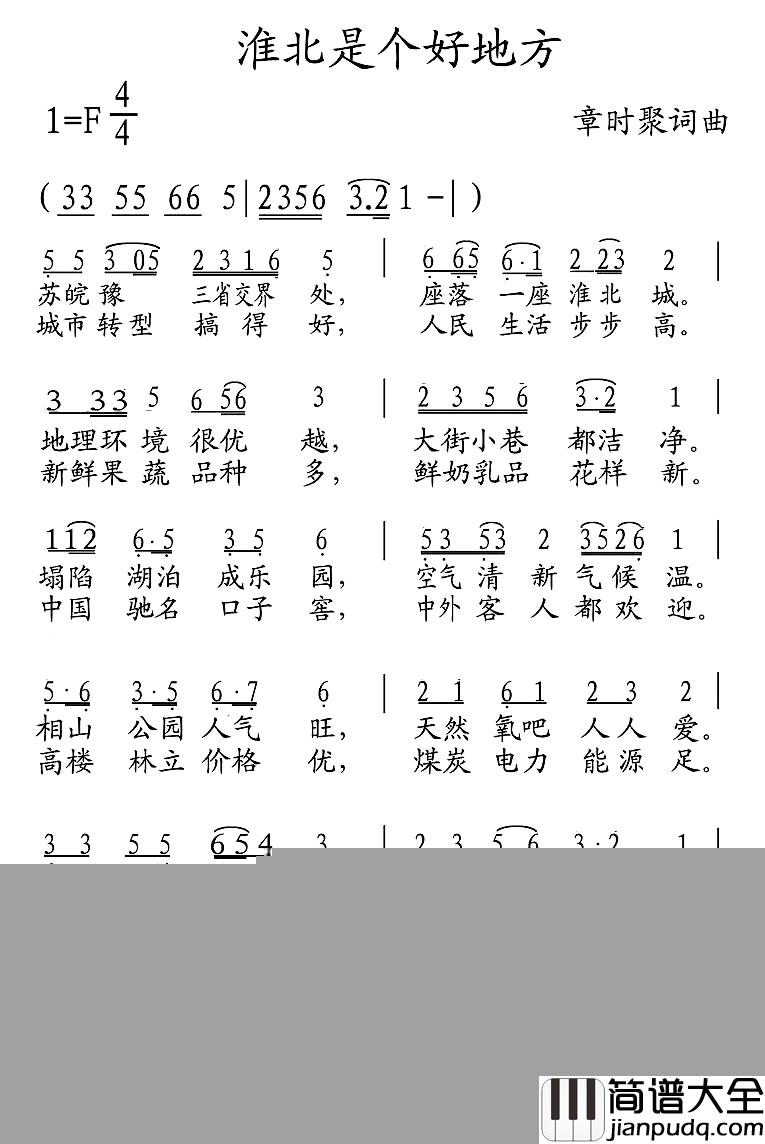 淮北是个好地方
1=F 4/4
章时聚词曲
( 33 55 66 5 | 2356 3.2 1 - | )
5 5 3 05 2 3 1 6 5 | 6 65 6·1 2 23 2 |
苏皖豫 三省交界 处, 座落 一座 淮北 城。
城市转型 搞得 好, 人民 生活 步步 高。
3 33 5 6 56 3 | 2 3 5 6 3·2 1 |
地理环境很优 越, 大街小巷 都洁 净。
新鲜果蔬 品种 多, 鲜奶乳品 花样 新。
112 6·5 3 5 6 | 53 53 2 3526 1 |
塌陷 湖泊 成乐 园, 空气清新气候温。
中国 驰名 口子 窖, 中外客人都欢迎。
5·6 3·5 6·7 6 | 2 1 6 1 2 3 2 |
相山 公园 人气 旺, 天然 氧吧 人人 爱。
高楼 林立 价格 优, 煤炭 电力 能源 足。
3 3 5 5 6 5 4 3 | 2 3 5 6 3·2 1 |
简谱大全
jianpudq.com